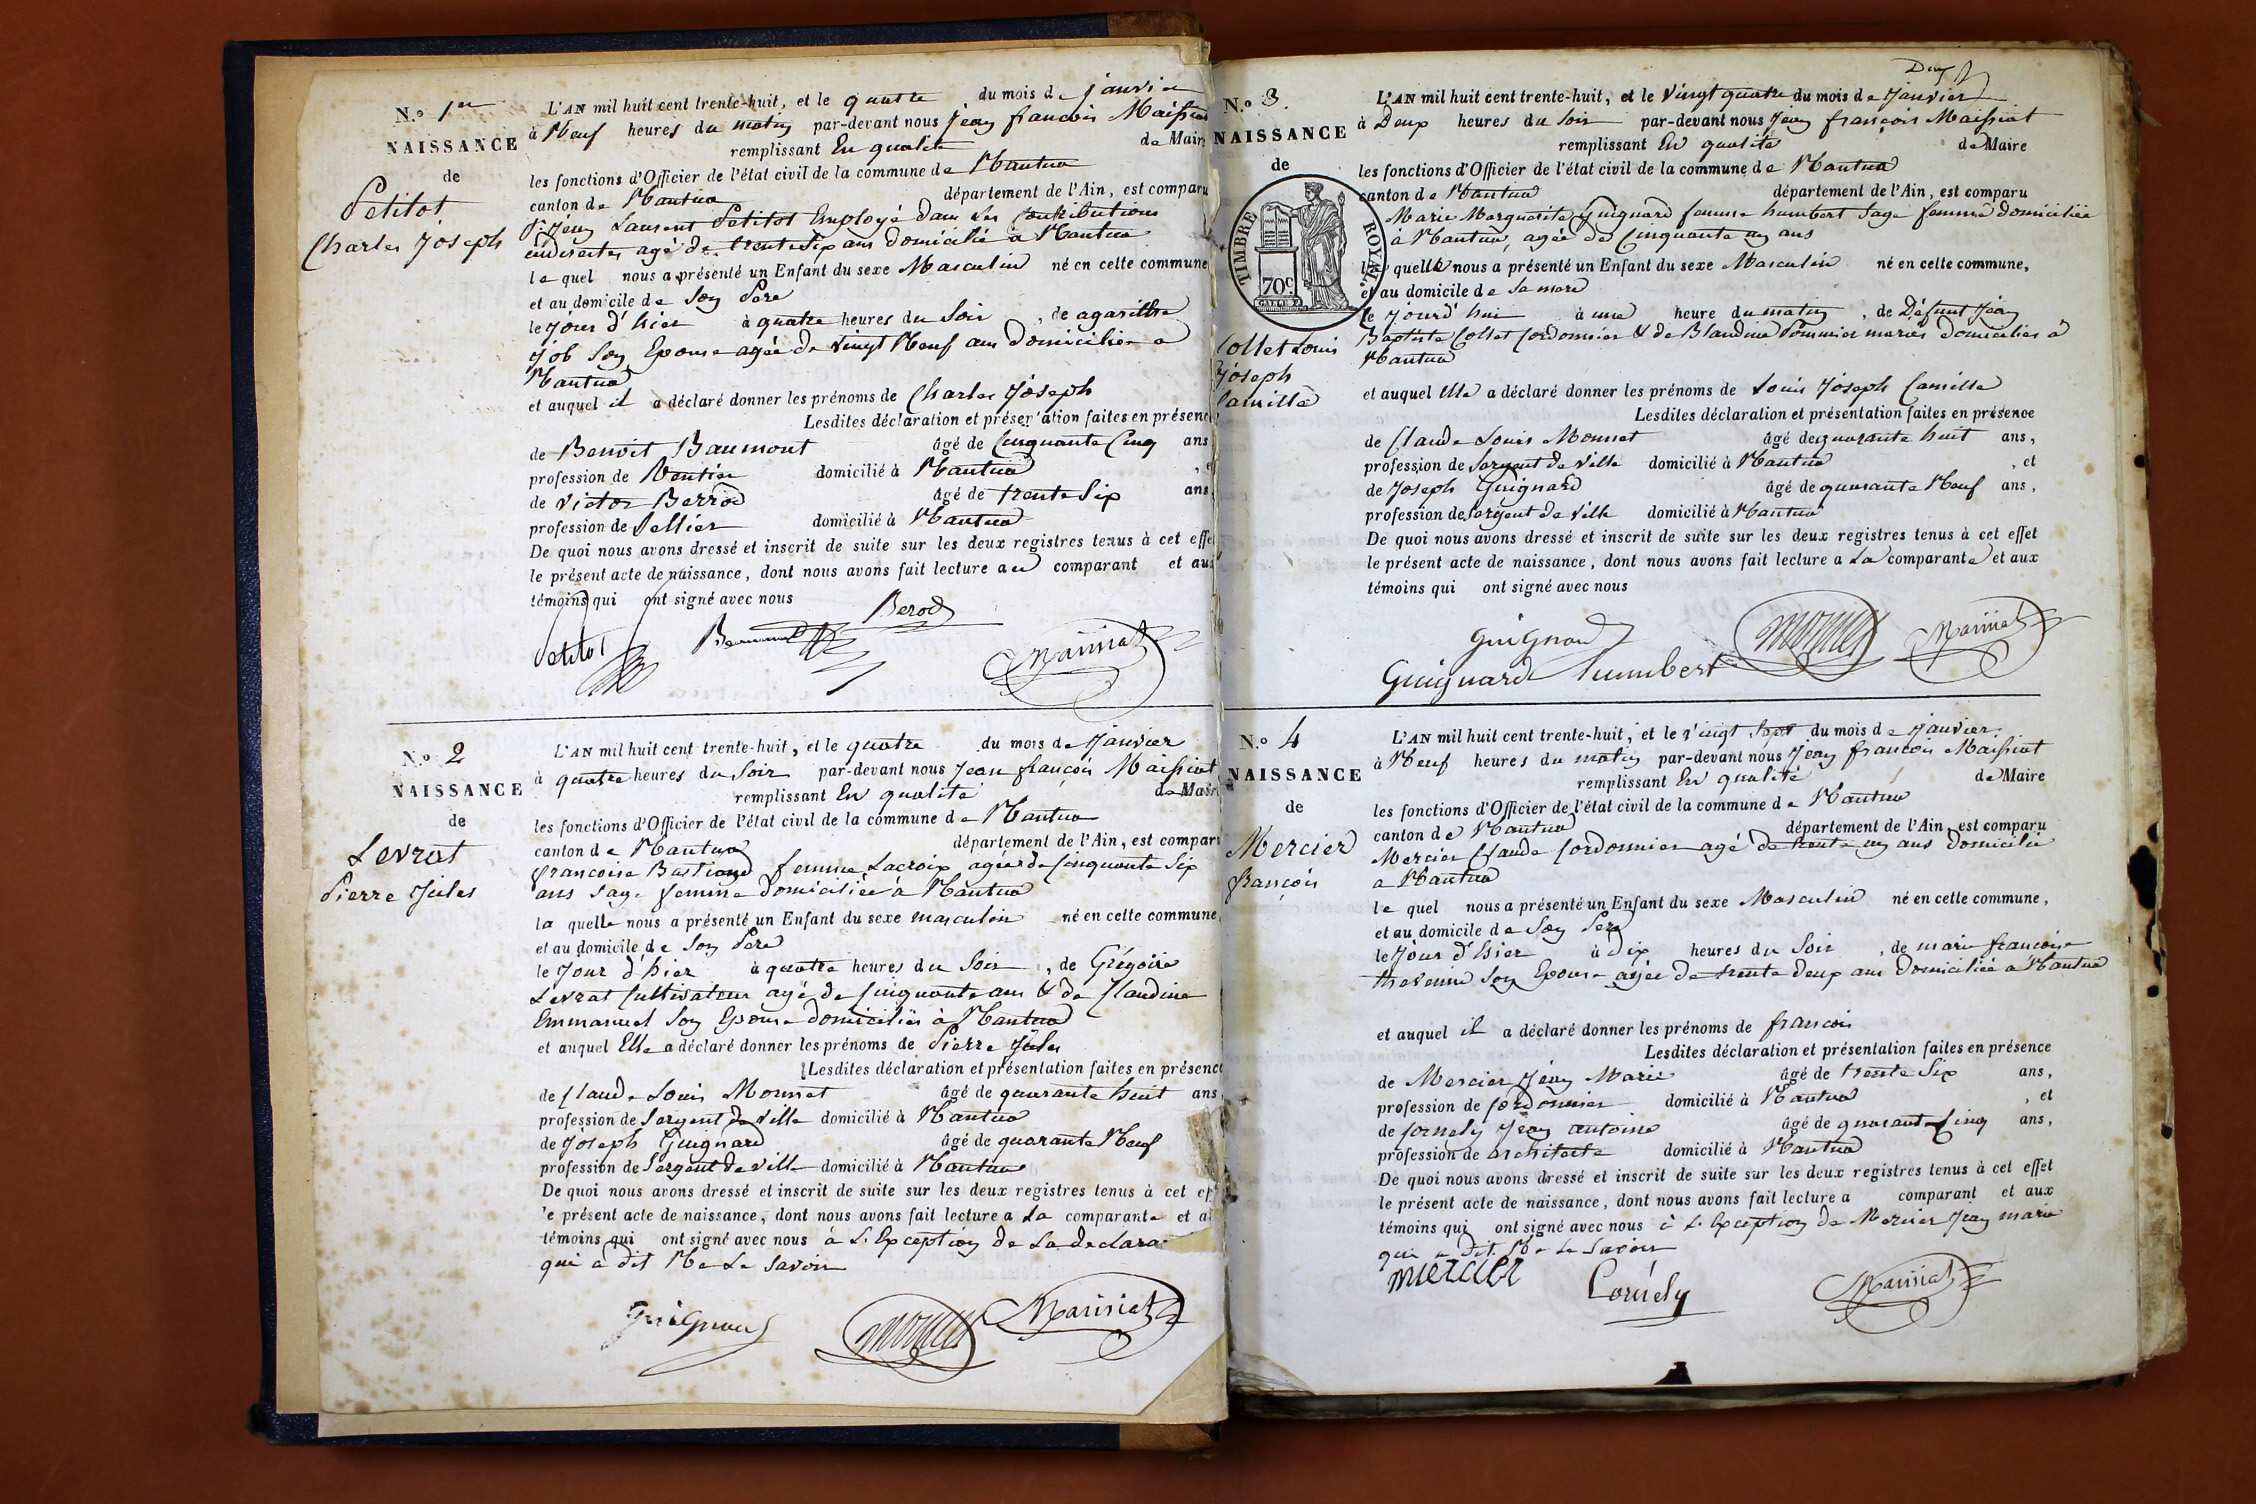 N.o 1er
NAISSANCE
de
Petitot
Charles Joseph
L'AN mil huit cent trente-huit, et le quatre du mois de janvier
à Neuf heures du matin par-devant nous jean francois Maissiat
remplissant En qualité de Maire
les fonctions d'Officier de l'état civil de la commune de Nantua
canton de Nantua département de l'Ain, est comparu
Sr. jean Laurent Petitot Employé dans les Contributions
indirectes agé de trente Six ans domicilié à Nantua
le quel nous a présenté un Enfant du sexe Masculin né en cette commune
et au domicile de Son Pere
le jour d'hier à quatre heures du Soir, de agarithe
job Son Epouse agée de vingt Neuf ans domiciliée a
Nantua
et auquel il a déclaré donner les prénoms de Charles Joseph
Lesdites déclaration et présentation faites en présence
de Benoit Baumont âgé de Cinquante Cinq ans
profession de Rentier domicilié à Nantua, et
de victor Berrod âgé de trente Six ans,
profession de Sellier domicilié à Nantua
De quoi nous avons dressé et inscrit de suite sur les deux registres tenus à cet effet
le présent acte de naissance, dont nous avons fait lecture au comparant et aux
témoins qui ont signé avec nous
Berod
Petitot
Maissiat
N.o 2
NAISSANCE
de
Levrat
Pierre Jules
L'AN mil huit cent trente-huit, et le quatre du mois de Janvier
à quatre heures du Soir par-devant nous Jean françois Maissiat
remplissant En qualité de Maire
les fonctions d'Officier de l'état civil de la commune de Nantua
canton de Nantua département de l'Ain, est comparu
francoise Bastiand femme Lacroix agée de Cinquante Six
ans Sage femme domiciliée à Nantua
la quelle nous a présenté un Enfant du sexe masculin né en cette commune,
et au domicile de Son Pere
le Jour d'hier à quatre heures du Soir, de Grégoire
Levrat Cultivateur agé de Cinquante ans & de Claudine
Emmanuel Son Epouse domiciliés à Nantua
et auquel Elle a déclaré donner les prénoms de Pierre Jules
Lesdites déclaration et présentation faites en présence
de Claude Louis Monnet âgé de quarante huit ans,
profession de Sergent de Ville domicilié à Nantua
de Joseph Guignard âgé de quarante Neuf
profession de Sergent de ville domicilié à Nantua
De quoi nous avons dressé et inscrit de suite sur les deux registres tenus à cet ef
le présent acte de naissance, dont nous avons fait lecture a La comparante et a
témoins qui ont signé avec nous à L'Exception de La declara
qui a dit Ne Le Savoir
Guignard
Monnet
Maissiat
Deux
N.o 3.
NAISSANCE
de
TIMBRE ROYAL.
70c.
Collet Louis
Joseph
Camille
L'AN mil huit cent trente-huit, et le Vingt quatre du mois de Janvier
à Deux heures du Soir par-devant nous Jean françois Maissiat
remplissant En qualité de Maire
les fonctions d'Officier de l'état civil de la commune de Nantua
canton de Nantua département de l'Ain, est comparu
Marie Marguerite Guignard femme humbert Sage femme domiciliée
à Nantua, agée de Cinquante un ans
la quelle nous a présenté un Enfant du sexe Masculin né en cette commune,
et au domicile de Sa mere
le jourd'hui à une heure du matin, de Défunt Jean
Baptiste Collet Cordonnier & de Blandine Pommier mariés domiciliés à
Nantua
et auquel Elle a déclaré donner les prénoms de Louis Joseph Camille
Lesdites déclaration et présentation faites en présence
de Claude Louis Monnet âgé de quarante huit ans,
profession de Sergent de Ville domicilié à Nantua, et
de Joseph Guignard âgé de quarante Neuf ans,
profession de Sergent de Ville domicilié à Nantua
De quoi nous avons dressé et inscrit de suite sur les deux registres tenus à cet effet
le présent acte de naissance, dont nous avons fait lecture a La comparante et aux
témoins qui ont signé avec nous
Guignard
Monnet
Maissiat
Guignard humbert
N.o 4
NAISSANCE
de
Mercier
françois
L'AN mil huit cent trente-huit, et le vingt Sept du mois de Janvier.
à Neuf heures du matin par-devant nous Jean francois Maissiat
remplissant En qualité de Maire
les fonctions d'Officier de l'état civil de la commune de Nantua
canton de Nantua département de l'Ain, est comparu
Mercier Claude Cordonnier agé de trente un ans Domicilié
a Nantua
le quel nous a présenté un Enfant du sexe Masculin né en cette commune,
et au domicile de Son Pere
le Jour d'hier à Dix heures du Soir, de marie francoise
thevenin Son Epouse agée de trente deux ans Domiciliée a Nantua
et auquel il a déclaré donner les prénoms de francois
Lesdites déclaration et présentation faites en présence
de Mercier Jean Marie âgé de trente Six ans,
profession de Cordonnier domicilié à Nantua, et
de Cornely Jean antoine âgé de quarante Cinq ans,
profession de architecte domicilié à Nantua
De quoi nous avons dressé et inscrit de suite sur les deux registres tenus à cet effet
le présent acte de naissance, dont nous avons fait lecture a comparant et aux
témoins qui ont signé avec nous à L'Exception de Mercier Jean marie
qui a Dit Ne Le Savoir
mercier
Cornély
Maissiat